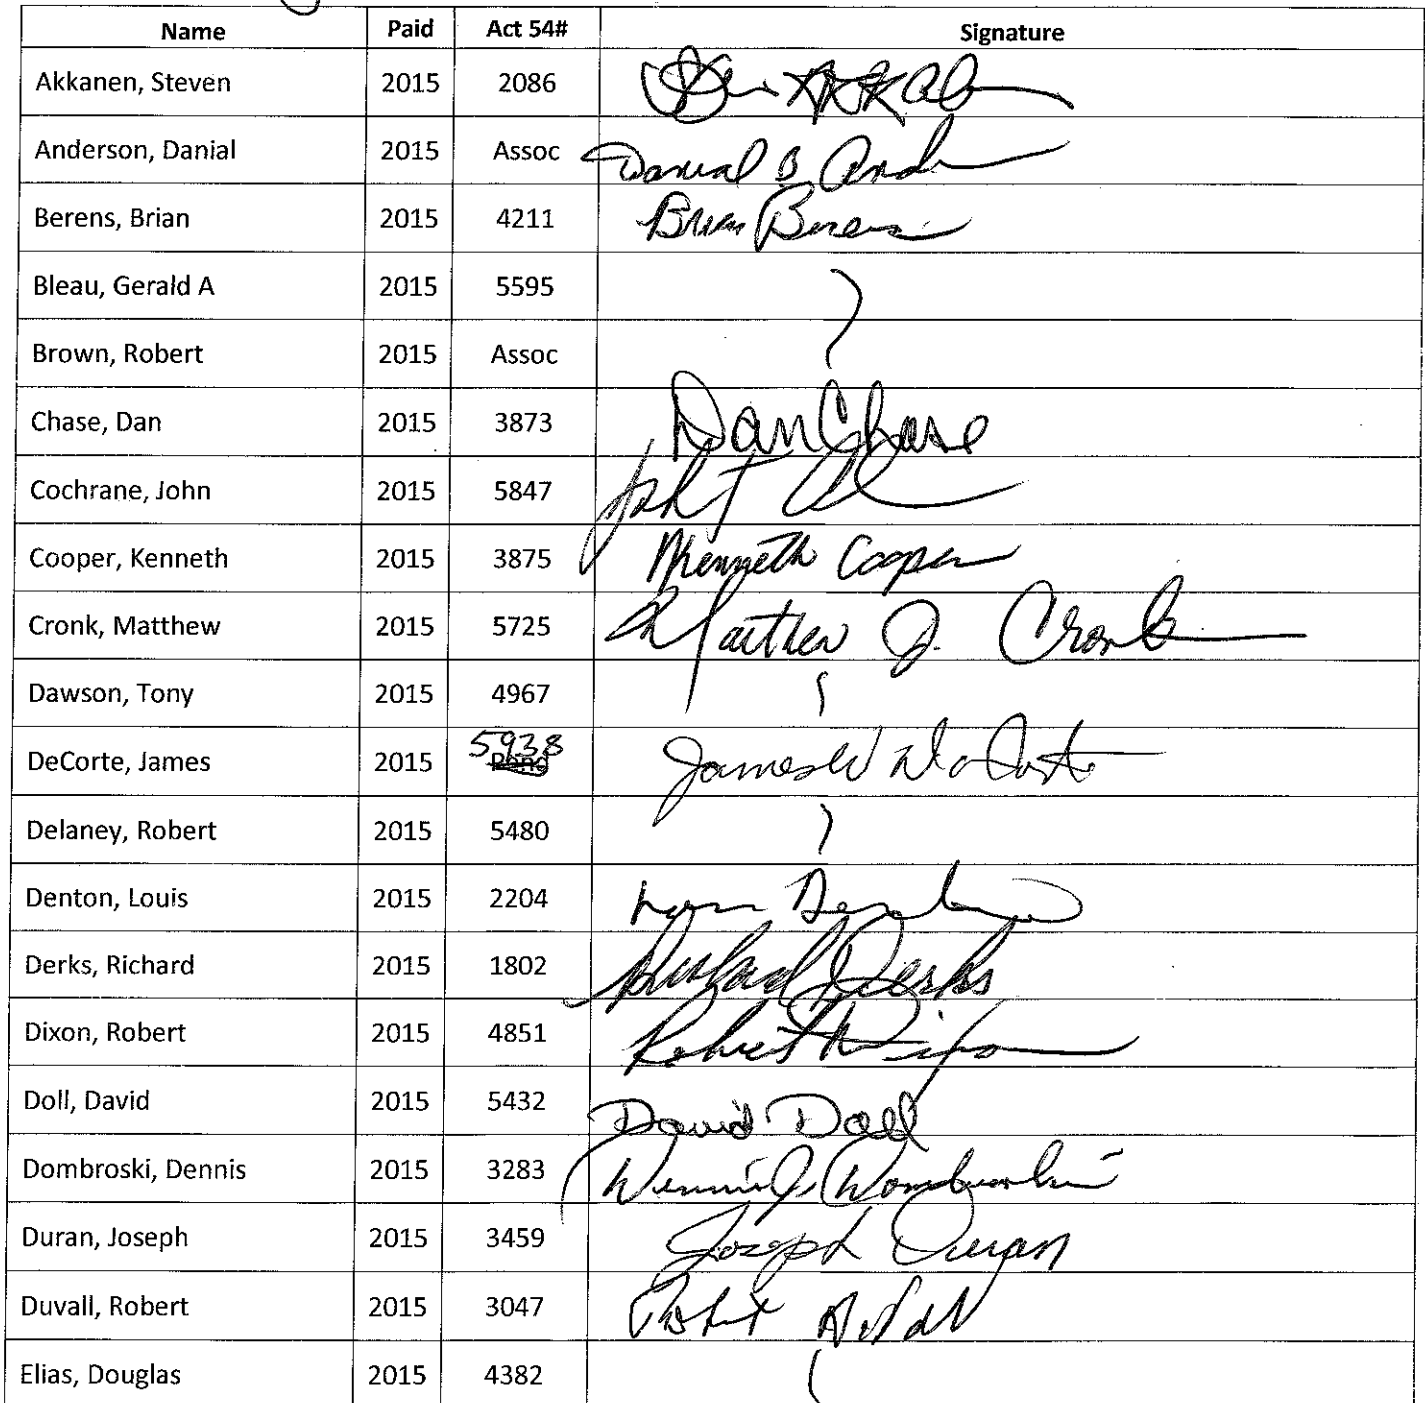 Name Paid Act 54# Signature
Akkanen, Steven 2015 2086
Anderson, Danial 2015 Assoc Danial B
Berens, Brian 2015 4211 Brian Berens
Bleau, Gerald A 2015 5595
Brown, Robert 2015 Assoc
Chase, Dan 2015 3873 Dan Chase
Cochrane, John 2015 5847
Cooper, Kenneth 2015 3875 Kenneth Cooper
Cronk, Matthew 2015 5725 Matthew J. Cronk
Dawson, Tony 2015 4967
5938
DeCorte, James 2015 Pend James W DeCorte
Delaney, Robert 2015 5480
Denton, Louis 2015 2204
Derks, Richard 2015 1802 Richard Derks
Dixon, Robert 2015 4851 Robert Dixon
Doll, David 2015 5432 David Doll
Dombroski, Dennis 2015 3283 Dennis J. Dombroski
Duran, Joseph 2015 3459 Joseph Duran
Duvall, Robert 2015 3047
Elias, Douglas 2015 4382